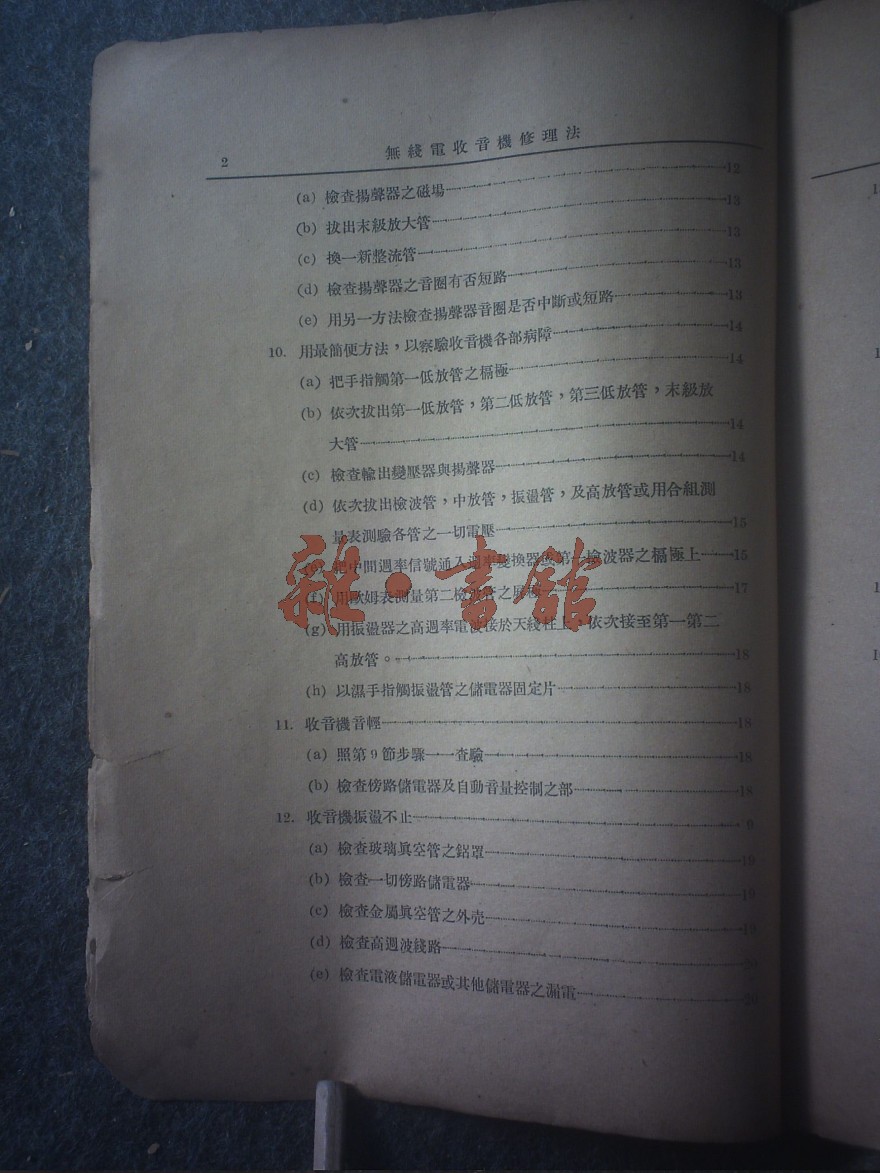 2
無綫電收音機修理法
(a) 檢查揚聲器之磁場 12
(b) 拔出末級放大管 13
(c) 換一新整流管 13
(d) 檢查揚聲器之音圈有否短路 13
(e) 用另一方法檢查揚聲器音圈是否中斷或短路 13
10. 用最簡便方法，以察驗收音機各部病障 14
(a) 把手指觸第一低放管之柵極 14
(b) 依次拔出第一低放管，第二低放管，第三低放管，末級放
大管 14
(c) 檢查輸出變壓器與揚聲器 14
(d) 依次拔出檢波管，中放管，振盪管，及高放管或用合組測
量表測驗各管之一切電壓 15
把中間週率信號通入週率變換器第一檢波器之柵極上 15
(f) 用歐姆表測量第二檢波管之屏極 17
(g) 用振盪器之高週率電波接於天綫柱上，依次接至第一第二
高放管。 18
(h) 以濕手指觸振盪管之儲電器固定片 18
11. 收音機音輕 18
(a) 照第9節步驟一一查驗 18
(b) 檢查傍路儲電器及自動音量控制之部 18
12. 收音機振盪不止 9
(a) 檢查玻璃眞空管之鋁罩 19
(b) 檢查一切傍路儲電器 19
(c) 檢查金屬眞空管之外壳 19
(d) 檢查高週波綫路
(e) 檢查電液儲電器或其他儲電器之漏電
雜·書館